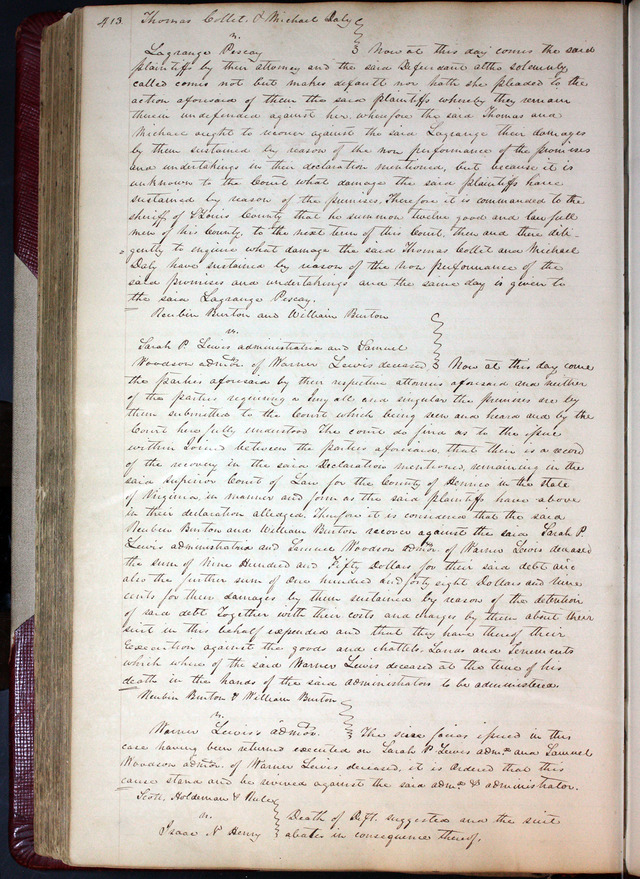 413. Thomas Collet & Michael Daly
vs.
Lagrange Pescay } Now at this day comes the said
plaintiffs by their attorney and the said Defendant altho solemnly
called comes not but makes default nor hath she pleaded to the
action aforesaid of them the said plaintiffs whereby they remain
therein undefended against her, wherefore the said Thomas and
Michael ought to recover against the said Lagrange their damages
by them sustained by reason of the non performance of the promises
and undertakings in their declaration mentioned, but because it is
unknown to the Court what damage the said plaintiffs have
sustained by reason of the premises. Therefore it is commanded to the
sheriff of St Louis County that he summon twelve good and lawfull
men of his County, to the next term of this Court, then and there dili-
gently to enquire what damage the said Thomas Collet and Michael
Daly have sustained by reason of the non performance of the
said promises and undertakings and the same day is given to
the said Lagrange Pescay.
Reubin Burton and William Burton
vs.
Sarah P. Lewis administratrix and Samuel
Woodson admor. of Warner Lewis deceased } Now at this day come
the parties aforesaid by their respective attornies aforesaid and neither
of the parties requiring a Jury all and singular the premises are by
them submitted to the Court which being seen and heard and by the
Court here fully understood The court do find as to the issue
within Joined between the parties aforesaid, that there is a record
of the recovery in the said Declaration mentioned, remaining in the
said Superior Court of Law for the County of Henrico in the state
of Virginia, in manner and form as the said plaintiffs have above
in their declaration alledged. Therefore it is considered that the said
Reubin Burton and William Burton recover against the said Sarah P.
Lewis administratrix and Samuel Woodson admor. of Warner Lewis deceased
the sum of Nine Hundred and Fifty Dollars for their said debt and
also the further sum of One hundred and forty eight Dollars and nine
cents for their damages by them sustained by reason of the detention
of said debt Together with their costs and charges by them about their
suit in this behalf expended and that they have thereof their
Execution against the goods and chattels, Lands and Tenements
which where of the said Warner Lewis deceased at the time of his
death in the hands of the said administrators to be administered.
Reubin Burton & William Burton
vs.
Warner Lewis's admor. } The scire facias issued in this
case having been returned executed on Sarah P. Lewis admx. and Samuel
Woodson admor. of Warner Lewis deceased, it is Ordered that this
cause stand and be revived against the said admx. & administrator.
Scott, Holdeman & Rule
vs. } Death of Deft. suggested and the suit
Isaac N Henry } abates in consequence thereof.